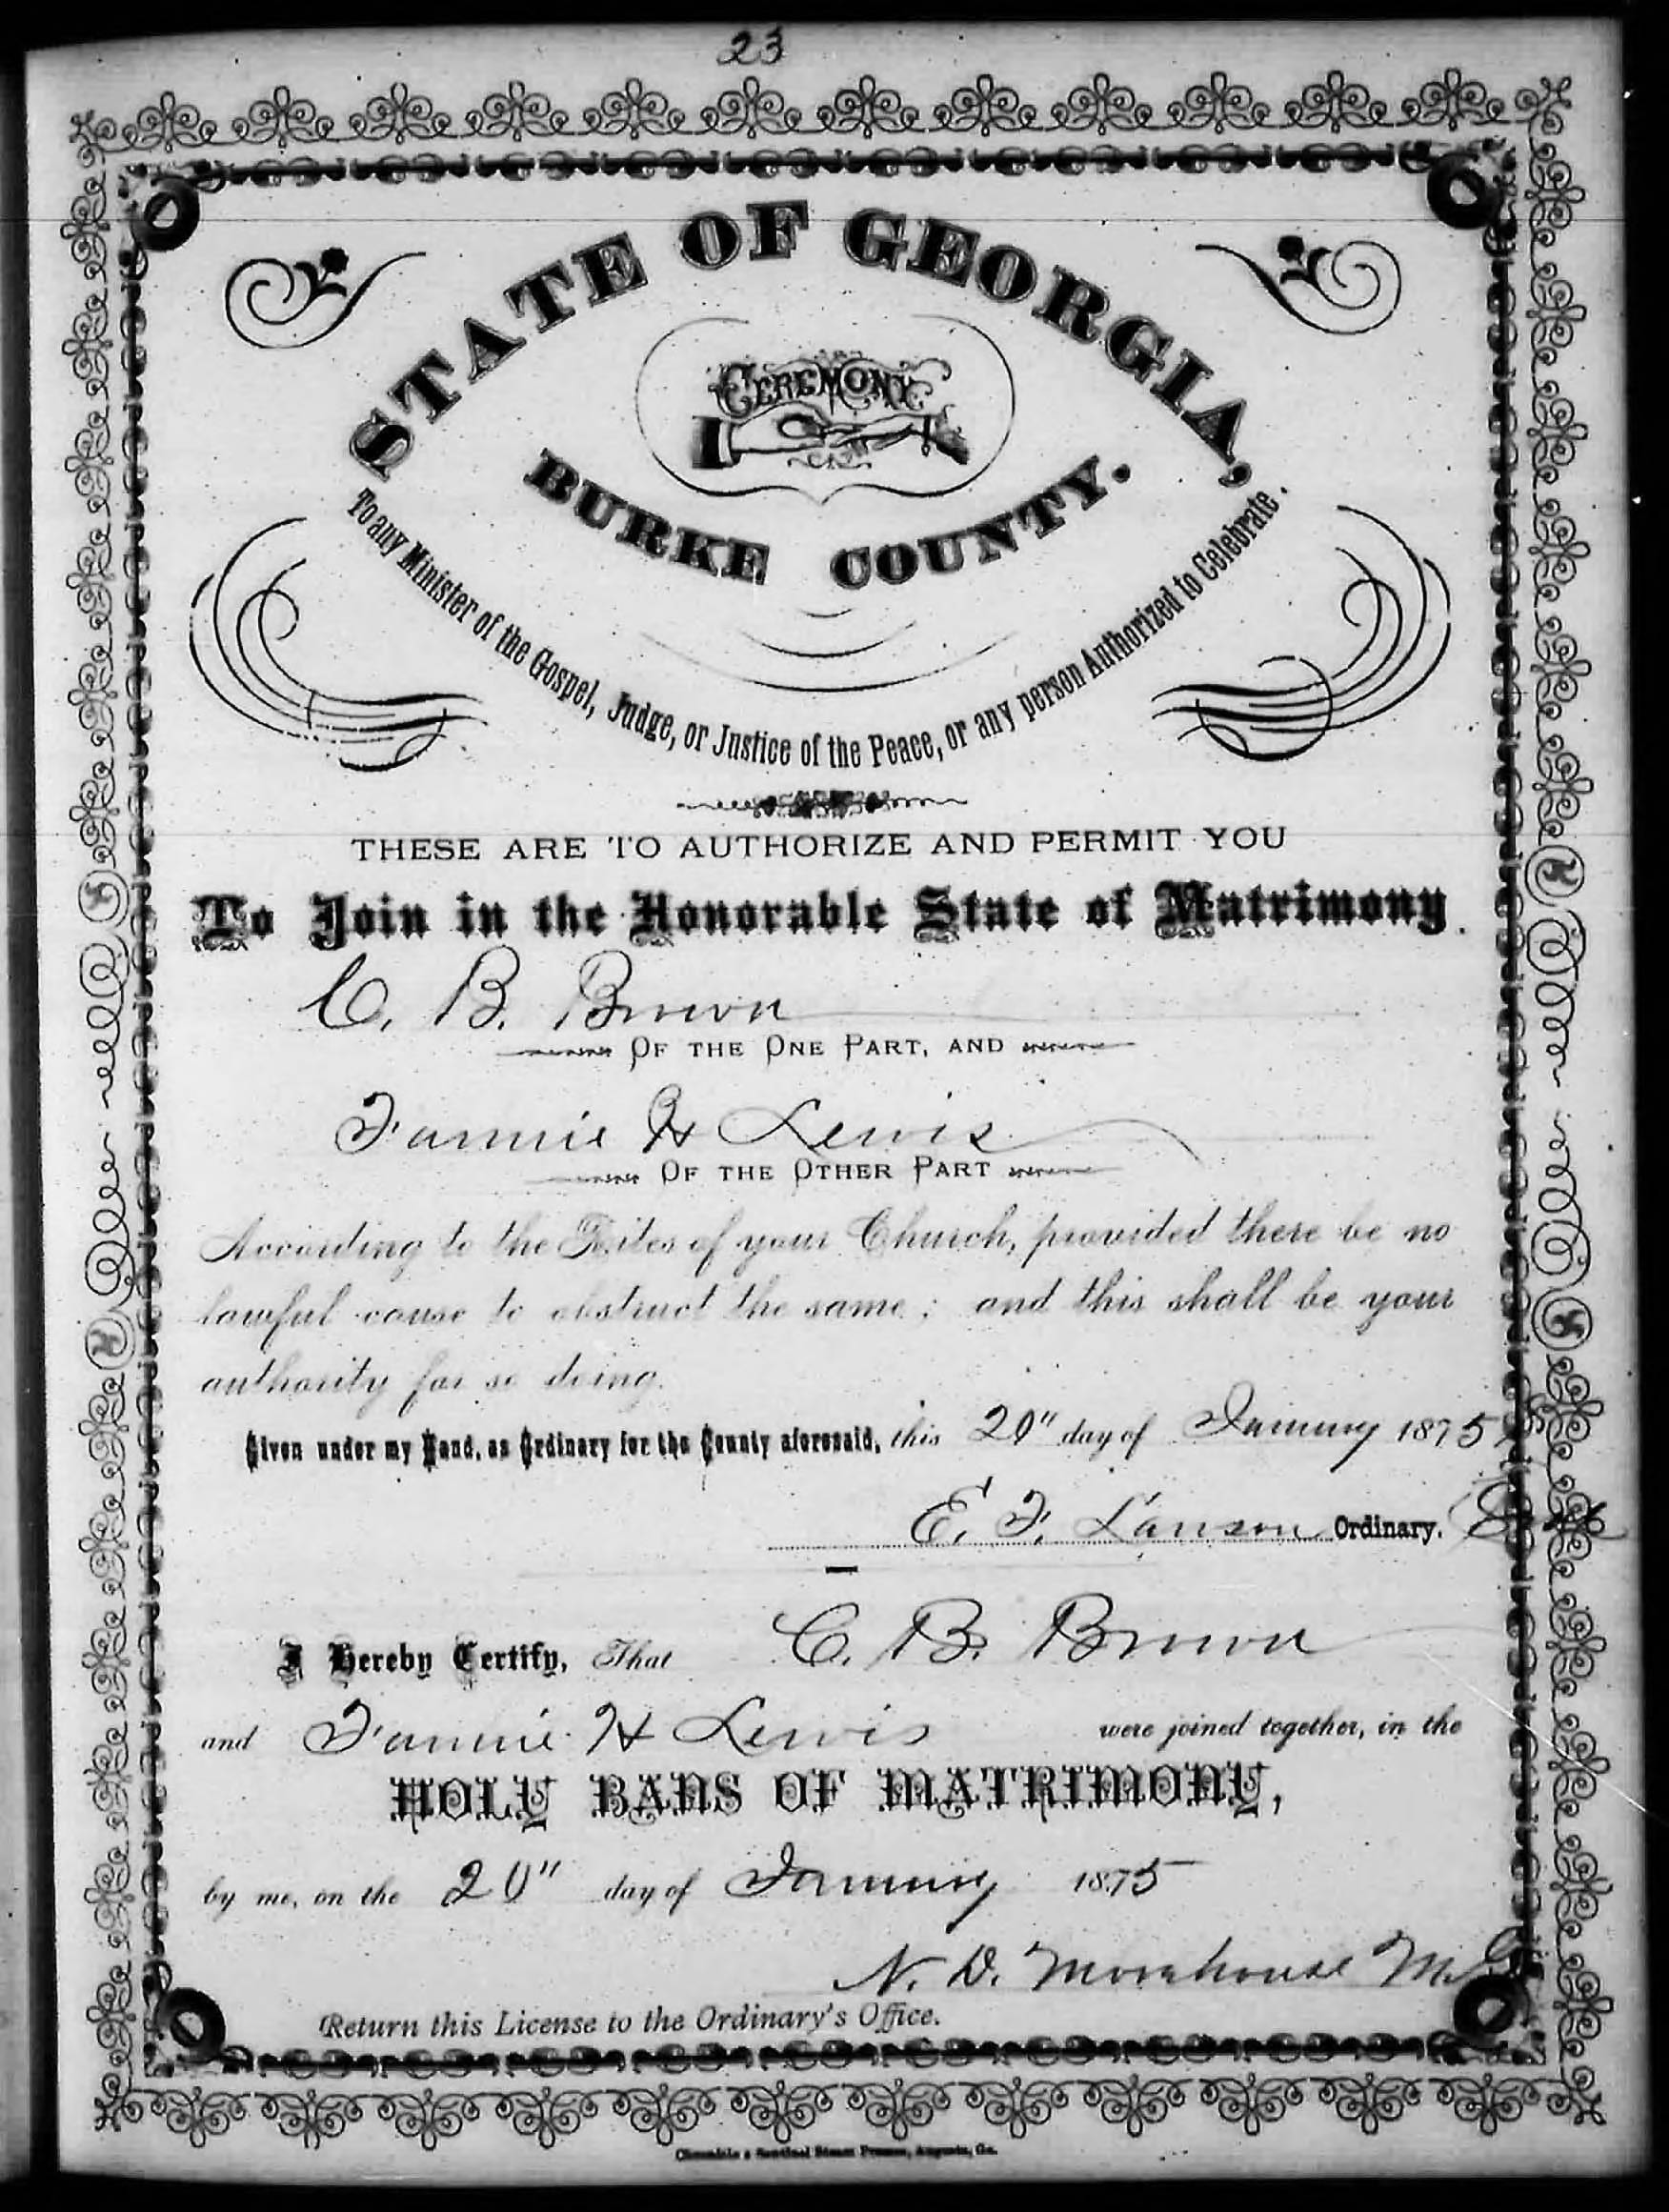 23
STATE OF GEORGIA,
CEREMONY
BURKE COUNTY.
To any Minister of the Gospel, Judge, or Justice of the Peace, or any person Authorized to Celebrate.
THESE ARE TO AUTHORIZE AND PERMIT YOU
To Join in the Honorable State of Matrimony.
C. B. Brown
OF THE ONE PART, AND
Fannie H Lewis
OF THE OTHER PART
According to the Rites of your Church, provided there be no
lawful cause to obstruct the same; and this shall be your
authority for so doing.
Given under my Hand, as Ordinary for the County aforesaid, this 20" day of January 1875
E. F. Lawson Ordinary.
I Hereby Certify, That C. B. Brown
and Fannie H Lewis were joined together, in the
HOLY BANS OF MATRIMONY,
by me, on the 20" day of January 1875
N. D. Morehouse M.G
Return this License to the Ordinary's Office.
Chronicle & Sentinel Steam Presses, Augusta, Ga.